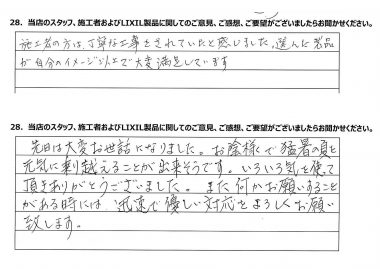 28. 当店のスタッフ、施工者およびLIXIL製品に関してのご意見、ご感想、ご要望がございましたらお聞かせください。
施工者の方は、丁寧な工事をされていたと感じました。選んだ製品
が自分のイメージ以上で大変満足しています
28. 当店のスタッフ、施工者およびLIXIL製品に関してのご意見、ご感想、ご要望がございましたらお聞かせください。
先日は大変お世話になりました。お陰様で猛暑の夏も
元気に乗り越えることが出来そうです。いろいろ気を使って
頂きありがとうございました。また何かお願いすること
がある時には、迅速で優しい対応をよろしくお願い
致します。